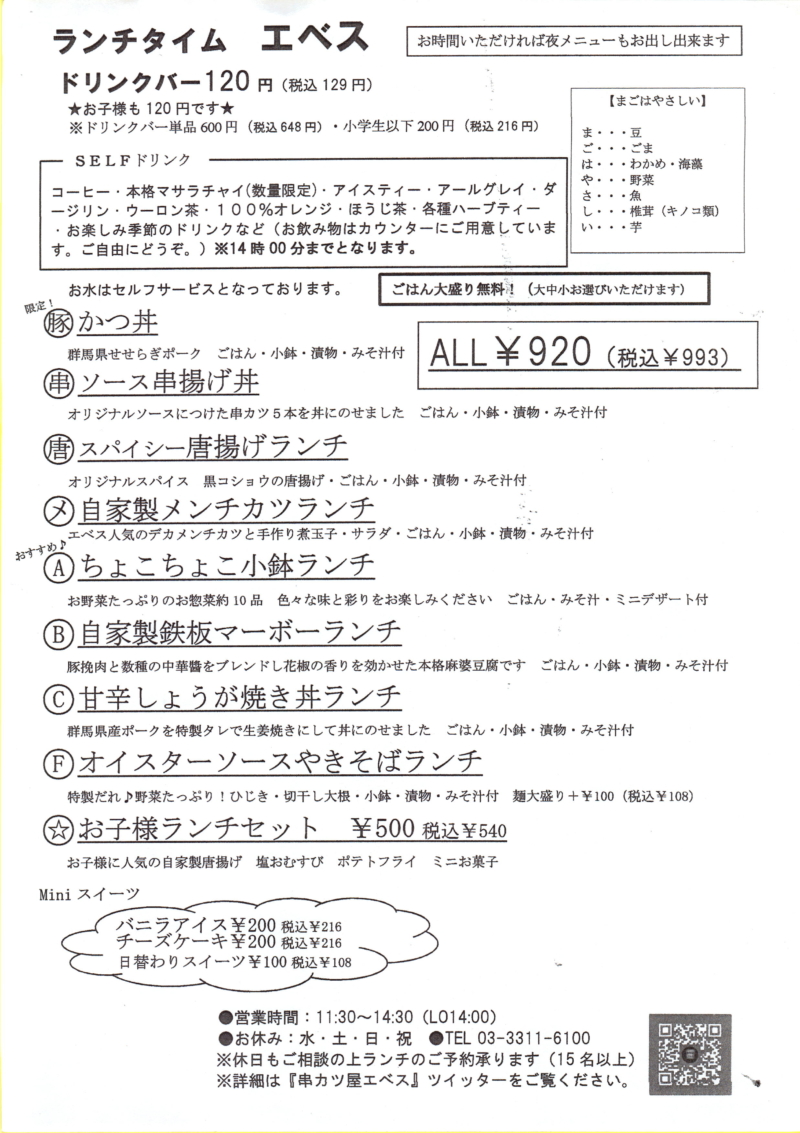 ランチタイム エベス
お時間いただければ夜メニューもお出し出来ます
ドリンクバー120円(税込129円)
★お子様も120円です★
※ドリンクバー単品600円(税込648円)・小学生以下200円(税込216円)
【まごはやさしい】
ま・・・豆
ご・・・ごま
は・・・わかめ・海藻
や・・・野菜
さ・・・魚
し・・・椎茸(キノコ類)
い・・・芋
SELFドリンク
コーヒー・本格マサラチャイ(数量限定)・アイスティー・アールグレイ・ダ
ージリン・ウーロン茶・100%オレンジ・ほうじ茶・各種ハーブティー
・お楽しみ季節のドリンクなど(お飲み物はカウンターにご用意していま
す。ご自由にどうぞ。)※14時00分までとなります。
お水はセルフサービスとなっております。
ごはん大盛り無料!(大中小お選びいただけます)
限定!
豚 かつ丼
群馬県せせらぎポーク ごはん・小鉢・漬物・みそ汁付
ALL¥920(税込¥993)
串 ソース串揚げ丼
オリジナルソースにつけた串カツ5本を丼にのせました ごはん・小鉢・漬物・みそ汁付
唐 スパイシー唐揚げランチ
オリジナルスパイス 黒コショウの唐揚げ・ごはん・小鉢・漬物・みそ汁付
メ 自家製メンチカツランチ
エベス人気のデカメンチカツと手作り煮玉子・サラダ・ごはん・小鉢・漬物・みそ汁付
おすすめ♪
Ⓐ ちょこちょこ小鉢ランチ
お野菜たっぷりのお惣菜約10品 色々な味と彩りをお楽しみください ごはん・みそ汁・ミニデザート付
Ⓑ 自家製鉄板マーボーランチ
豚挽肉と数種の中華醬をブレンドし花椒の香りを効かせた本格麻婆豆腐です ごはん・小鉢・漬物・みそ汁付
Ⓒ 甘辛しょうが焼き丼ランチ
群馬県産ポークを特製タレで生姜焼きにして丼にのせました ごはん・小鉢・漬物・みそ汁付
Ⓕ オイスターソースやきそばランチ
特製だれ♪野菜たっぷり!ひじき・切干し大根・小鉢・漬物・みそ汁付 麺大盛り+¥100(税込¥108)
☆ お子様ランチセット ¥500 税込¥540
お子様に人気の自家製唐揚げ 塩おむすび ポテトフライ ミニお菓子
Miniスイーツ
バニラアイス¥200 税込¥216
チーズケーキ¥200 税込¥216
日替わりスイーツ¥100 税込¥108
●営業時間:11:30~14:30(LO14:00)
●お休み:水・土・日・祝 ●TEL 03-3311-6100
※休日もご相談の上ランチのご予約承ります(15名以上)
※詳細は『串カツ屋エベス』ツイッターをご覧ください。